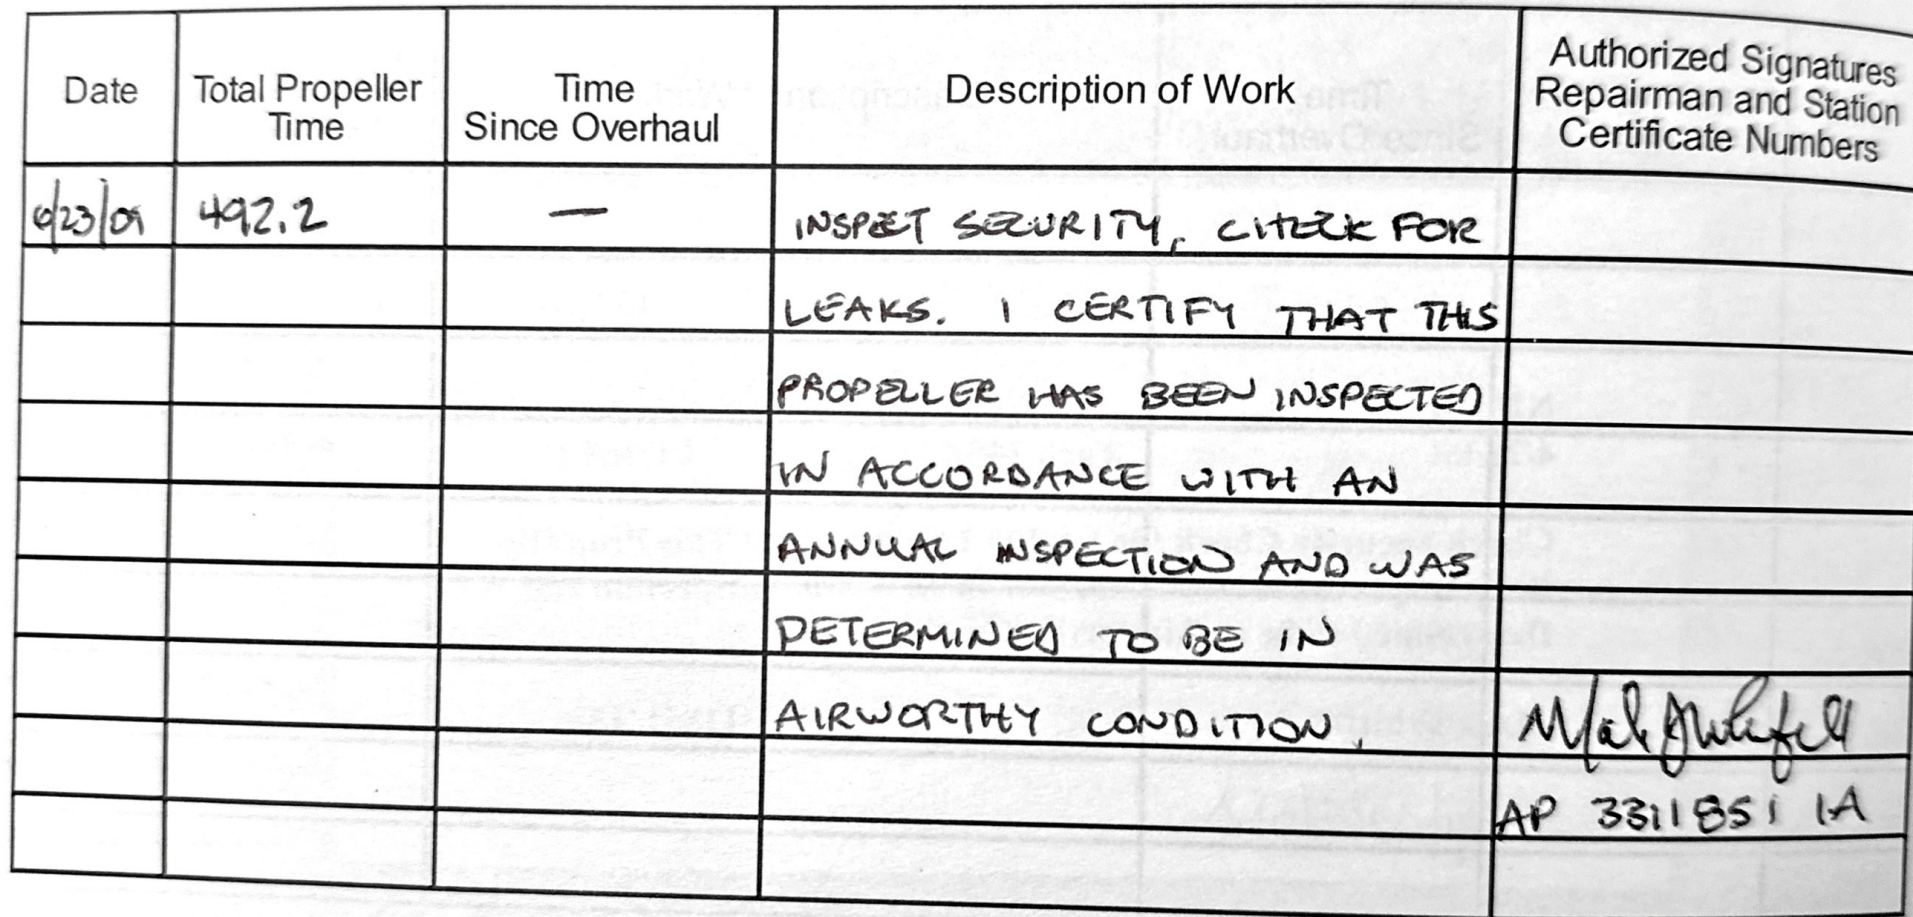 Date
Total Propeller
Time
Time
Since Overhaul
Description of Work
Authorized Signatures
Repairman and Station
Certificate Numbers
6/23/09 492.2 — INSPECT SECURITY, CHECK FOR
LEAKS. I CERTIFY THAT THIS
PROPELLER HAS BEEN INSPECTED
IN ACCORDANCE WITH AN
ANNUAL INSPECTION AND WAS
DETERMINED TO BE IN
AIRWORTHY CONDITION.
AP 3311851 IA